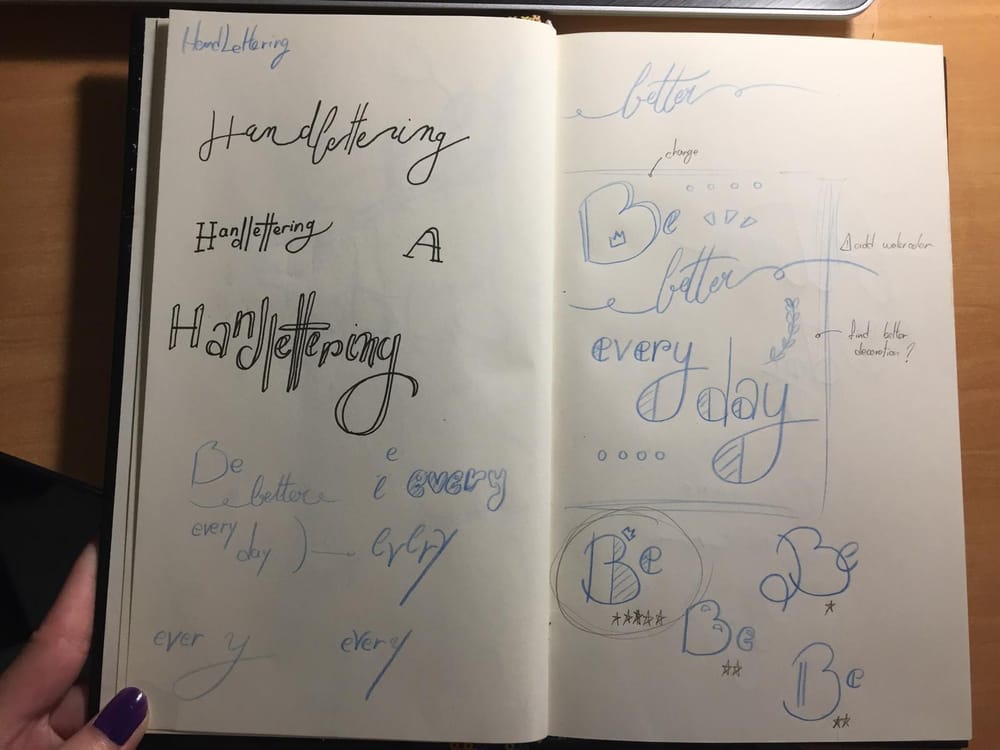 HandLettering
Handlettering
Handlettering
A
Handlettering
Be
better
every
day
e
e every
every
every
every
better
change
Be
better
add watercolor
every
day
find better
decoration?
Be
Be
Be
Be